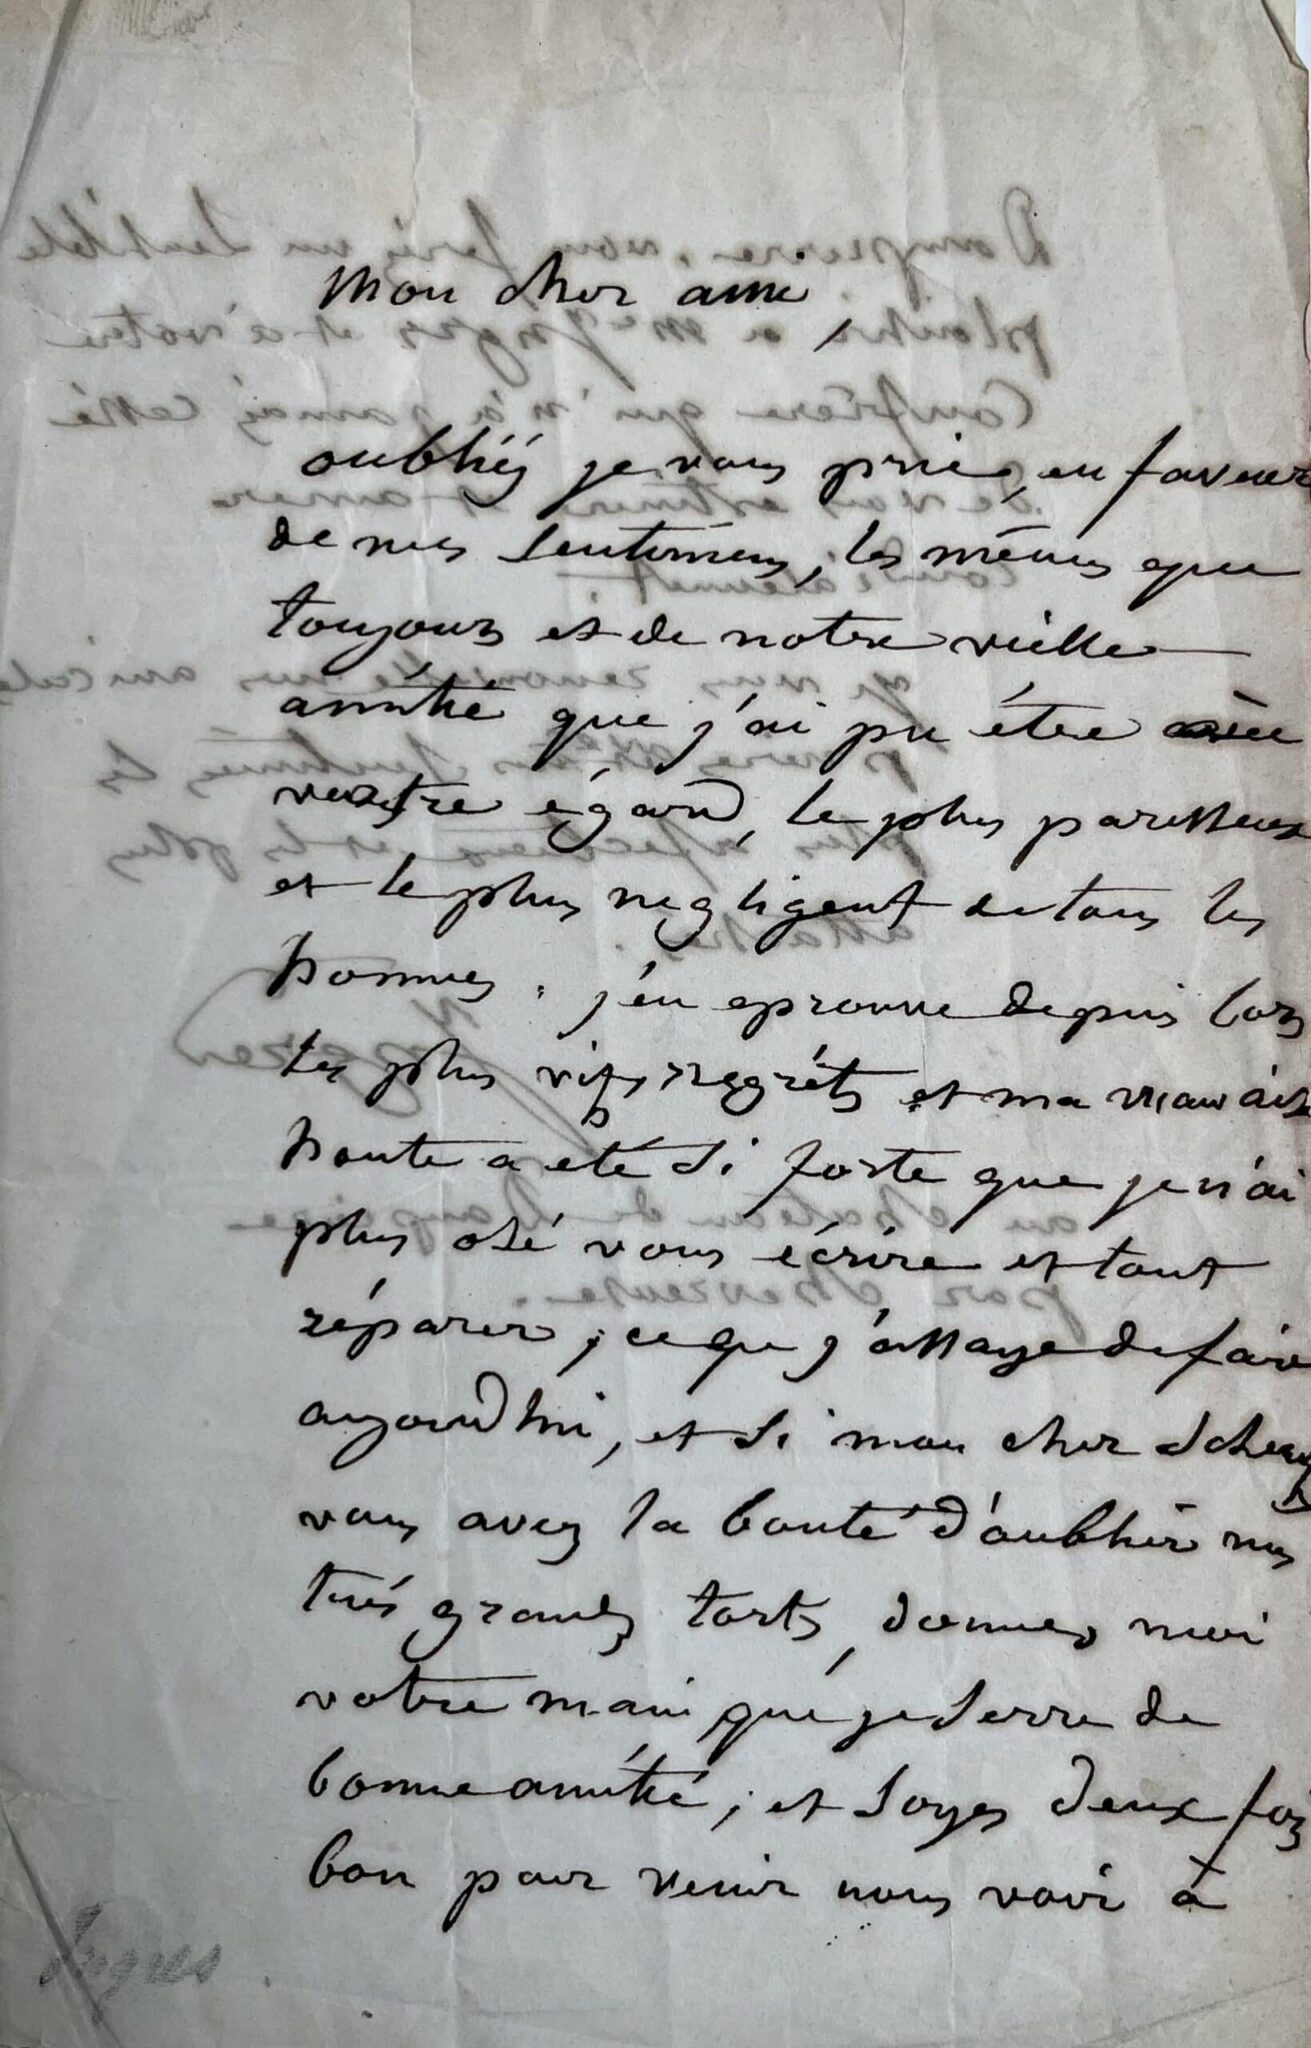 Mon cher ami,
oubliés je vous prie, en faveur
de mes sentimens, les mêmes que
toujours et de notre vieille
amitié que j'ai pu être
votre égard, le plus paresseux
et le plus negligent de tous les
hommes. j'en eprouve depuis lors
les plus vifs regrêts et ma mauvaise
honte a été si forte que je n'ai
plus osé vous écrire et tout
réparer, ce que j'assaye de faire
aujourdhui, et si mon cher
vous avez la bonté d'oublier mes
très grands torts, donnes moi
votre main que je serre de
bonne amitié, et soyes deux fois
bon pour venir nous voir à
Ingres